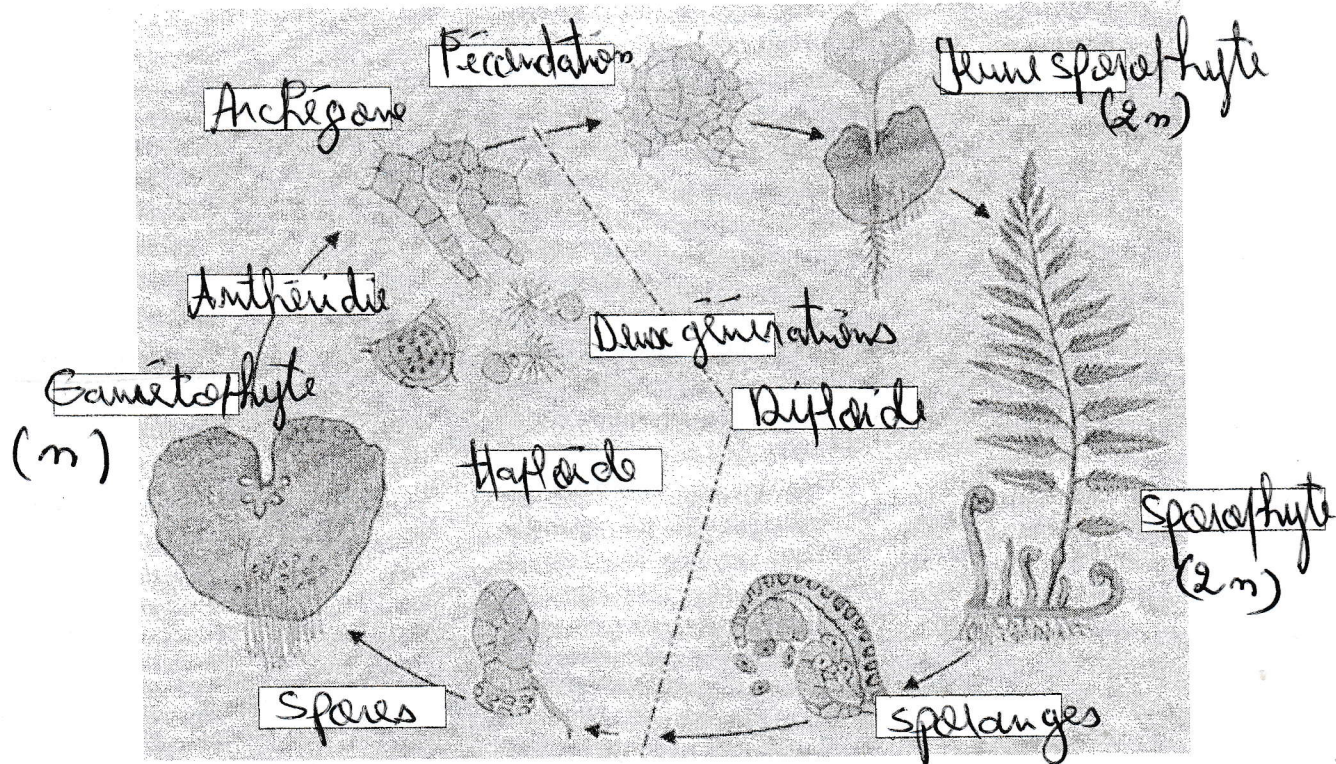 Fécondation
Jeune sporophyte
(2n)
Archégone
Anthéridie
Deux générations
Gamétophyte
(n)
Diploïde
Haploïde
Sporophyte
(2n)
Spores
Sporanges